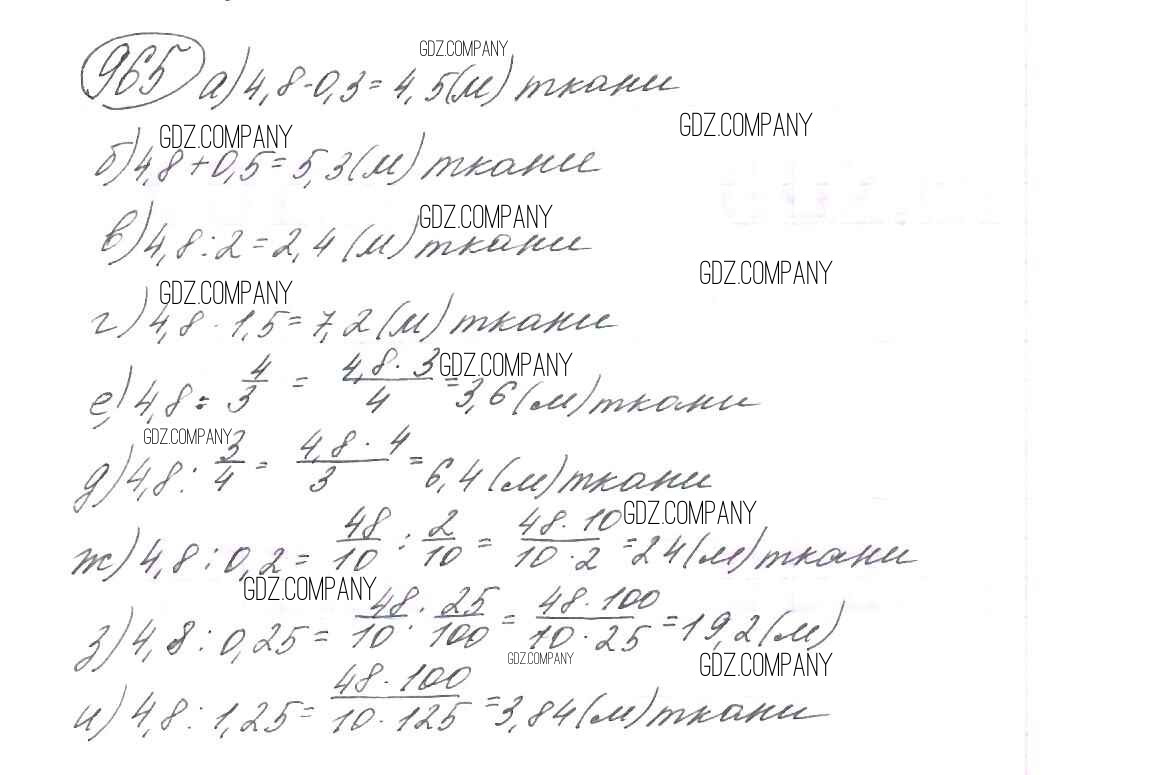 GDZ.COMPANY
965 а) 4,8-0,3=4,5(м) ткани
GDZ.COMPANY
GDZ.COMPANY
б) 4,8+0,5=5,3(м) ткани
GDZ.COMPANY
в) 4,8:2=2,4(м) ткани
GDZ.COMPANY
GDZ.COMPANY
г) 4,8·1,5=7,2(м) ткани
GDZ.COMPANY
е) 4,8:4/3=4,8·3/4=3,6(м) ткани
GDZ.COMPANY
д) 4,8:3/4=4,8·4/3=6,4(м) ткани
GDZ.COMPANY
ж) 4,8:0,2=48/10:2/10=48·10/10·2=24(м) ткани
GDZ.COMPANY
з) 4,8:0,25=48/10:25/100=48·100/10·25=19,2(м)
GDZ.COMPANY
GDZ.COMPANY
и) 4,8:1,25=48·100/10·125=3,84(м) ткани